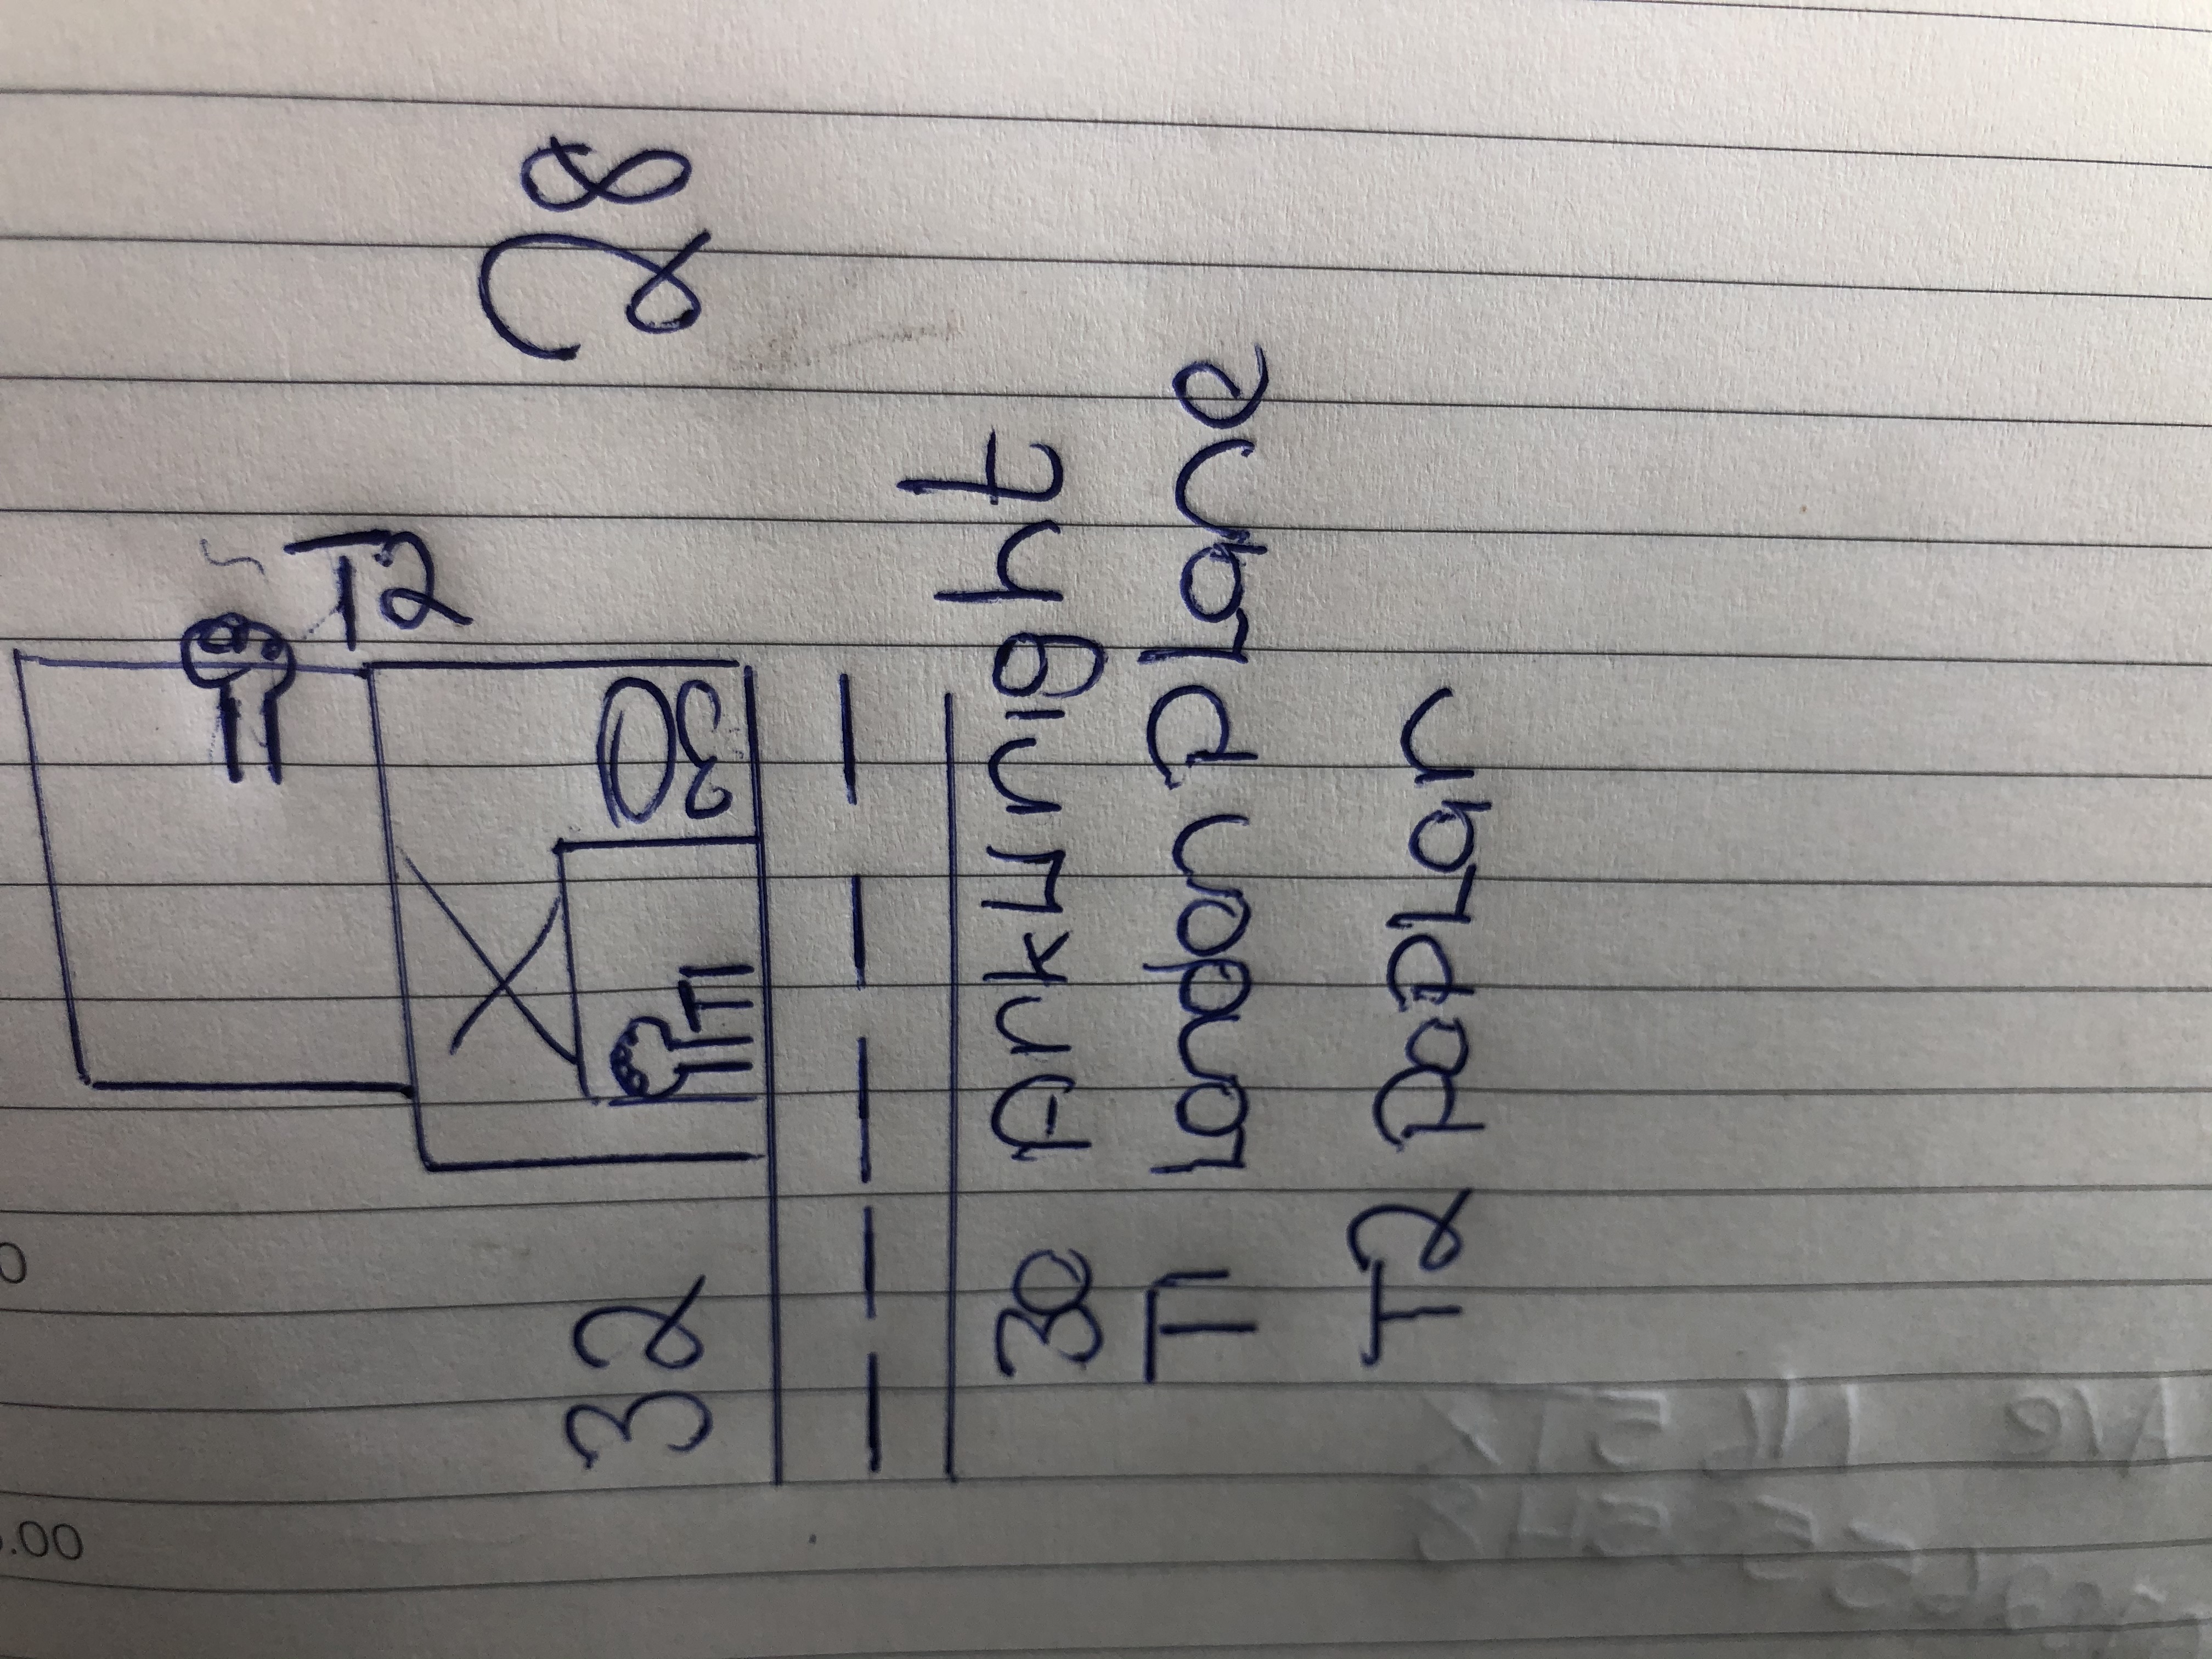 T2
30
T1
32
28
30 Arkwright
T1 London Plane
T2 Poplar
.00